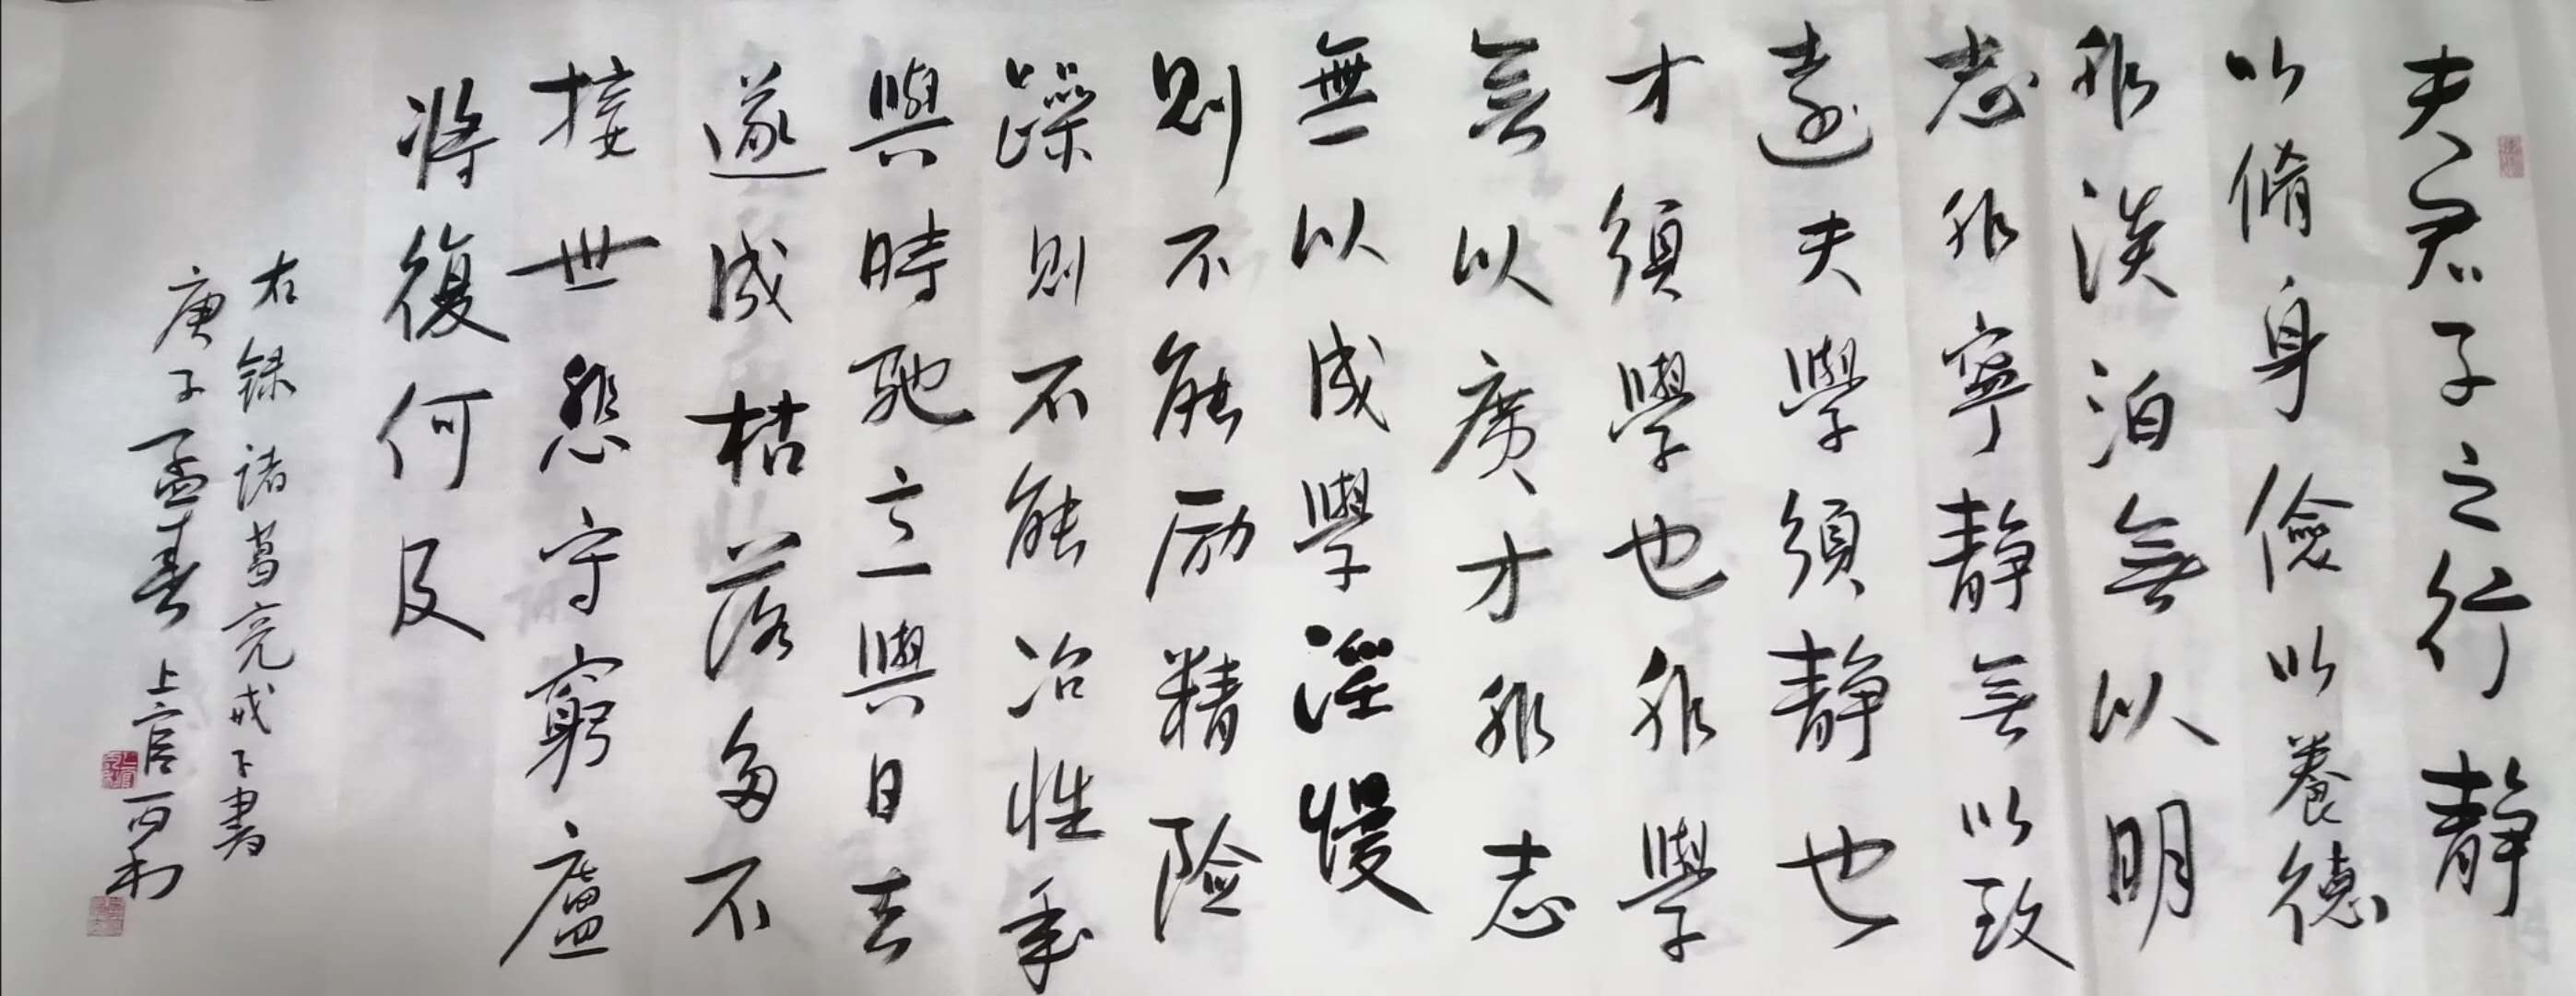 夫君子之行静
以脩身儉以養德
非淡泊無以明
志非寧静無以致
遠夫學須静也
才須學也非學
無以廣才非志
無以成學淫慢
则不能励精险
躁则不能冶性年
與時馳意與日去
遂成枯落多不
接世悲守窮廬
将復何及
右録諸葛亮戒子書
庚子孟春上官百利